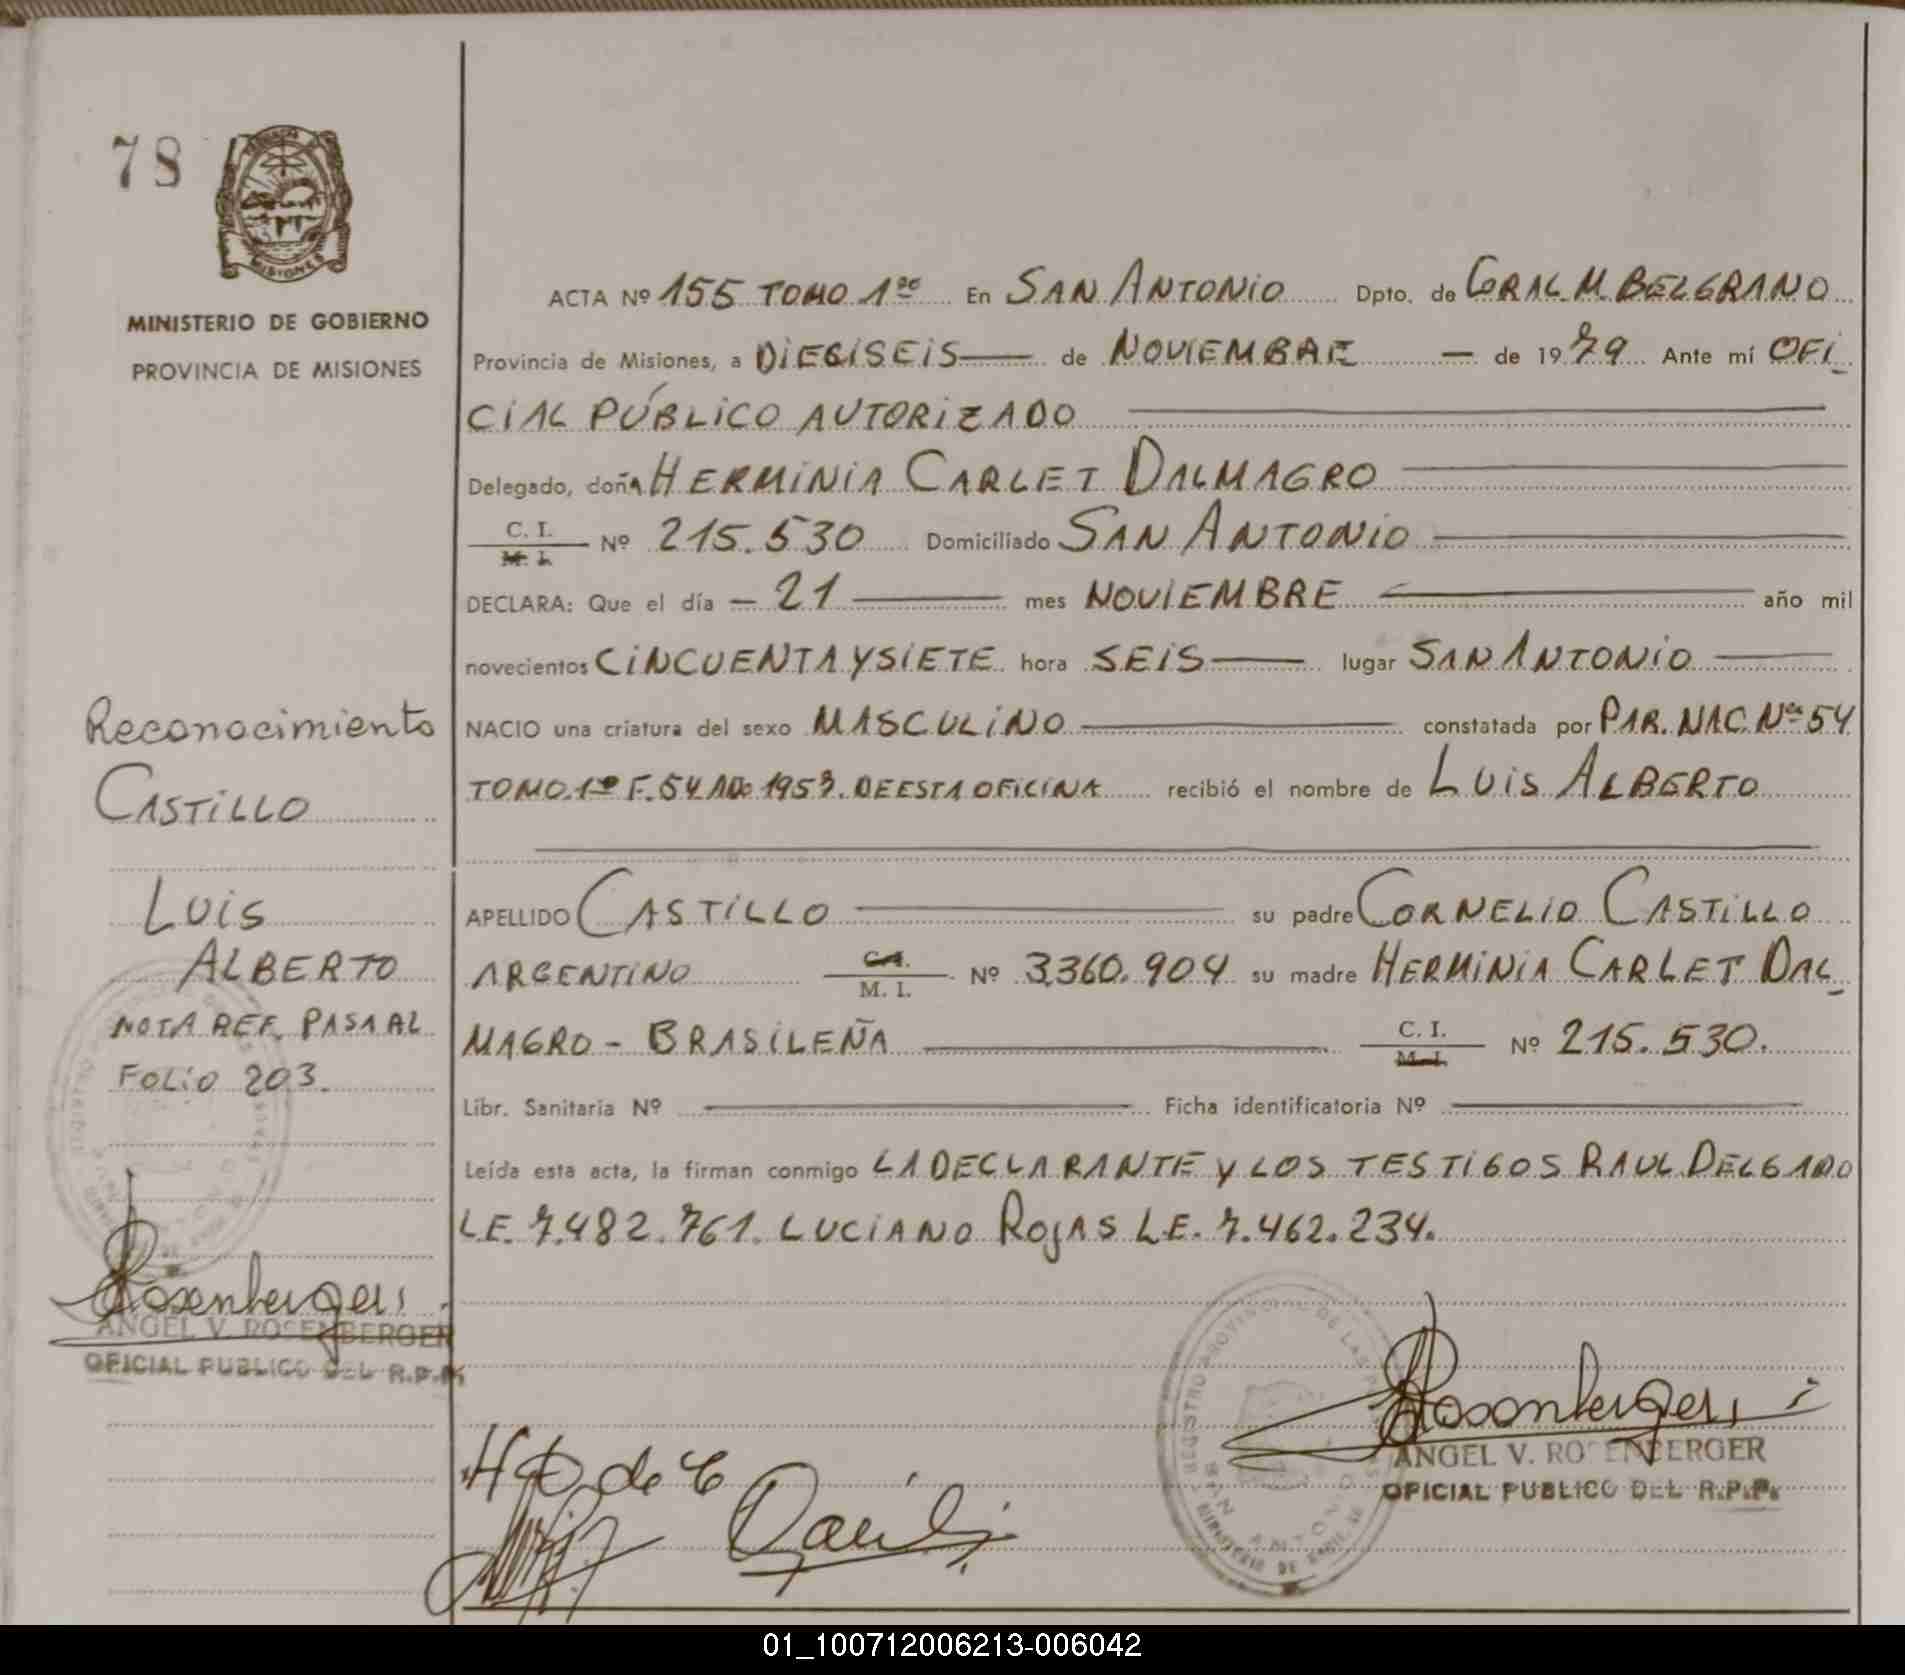 78
MISIONES
MINISTERIO DE GOBIERNO
PROVINCIA DE MISIONES
ACTA Nº 155 TOMO 1ro En SAN ANTONIO Dpto. de GRAL M. BELGRANO
Provincia de Misiones, a DIECISEIS — de NOVIEMBRE — de 1979 Ante mí OFI-
CIAL PÚBLICO AUTORIZADO
Delegado, doña HERMINIA CARLET DALMAGRO
C. I. M. I. Nº 215.530 Domiciliado SAN ANTONIO
DECLARA: Que el día — 21 — mes NOVIEMBRE — año mil
novecientos CINCUENTA Y SIETE hora SEIS — lugar SAN ANTONIO
NACIO una criatura del sexo MASCULINO — constatada por PAR. NAC. Nº 54
TOMO 1º F. 54 AÑO 1957. DE ESTA OFICINA recibió el nombre de LUIS ALBERTO
APELLIDO CASTILLO — su padre CORNELIO CASTILLO
ARGENTINO C. I. M. I. Nº 3.360.904 su madre HERMINIA CARLET DAL-
MAGRO - BRASILEÑA — C. I. M. I. Nº 215.530.
Libr. Sanitaria Nº — Ficha identificatoria Nº —
Leída esta acta, la firman conmigo LA DECLARANTE Y LOS TESTIGOS RAUL DELGADO
L.E. 7.482.761. LUCIANO ROJAS L.E. 7.462.234.
Reconocimiento
CASTILLO
LUIS
ALBERTO
NOTA REF. PASA AL
FOLIO 203.
Rosenberger
ANGEL V. ROSENBERGER
OFICIAL PUBLICO DEL R.P.P.
H D de C
Rosenberger
ANGEL V. ROSENBERGER
OFICIAL PUBLICO DEL R.P.P.
01_100712006213-006042